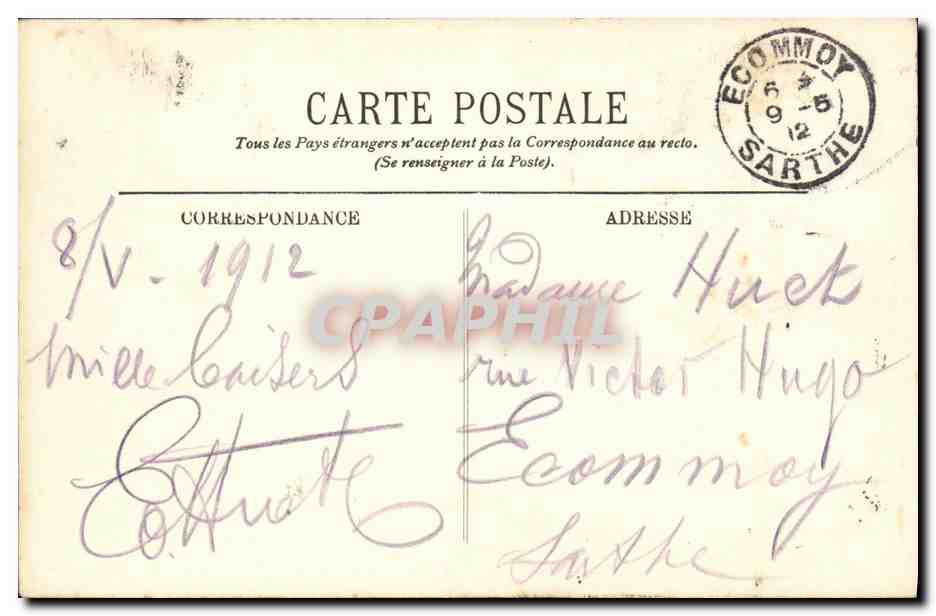 CARTE POSTALE
Tous les Pays étrangers n'acceptent pas la Correspondance au recto.
(Se renseigner à la Poste).
ECOMMOY
6 *
9 -5
12
SARTHE
CORRESPONDANCE
8/V - 1912
mille baisers
Huck
ADRESSE
Madame Huck
rue Victor Hugo
Ecommoy
Sarthe
CPAPHIL